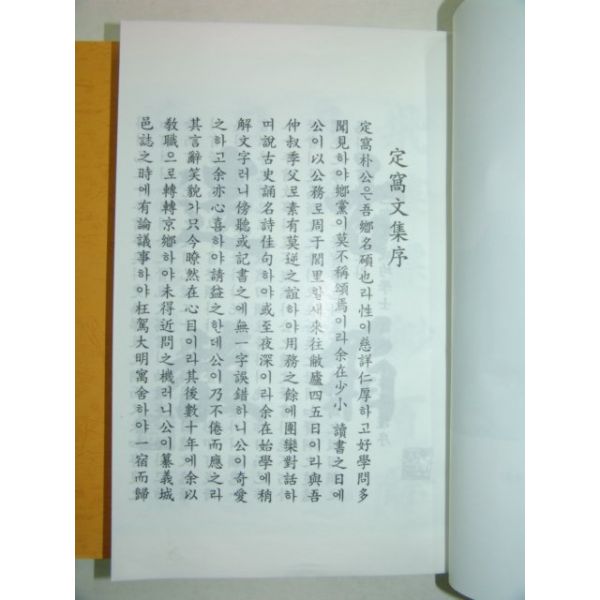 定窩文集序
定窩朴公은吾鄉名碩也라性이慈詳仁厚하고好學問多
聞見하야鄉黨이莫不稱頌焉이라余在少小 讀書之日에
公이以公務로周于閭里할새來往敝廬四五日이라與吾
仲叔季父로素有莫逆之誼하야用務之餘에團欒對話하
며說古史誦名詩佳句하야或至夜深이라余在始學에稍
解文字러니傍聽或記書之에無一字誤錯하니公이奇愛
之하고余亦心喜하야請益之한데公이乃不倦而應之라
其言辭笑貌가只今暸然在心目이라其後數十年에余以
敎職으로轉轉京鄉하야未得近問之機러니公이纂義城
邑誌之時에有論議事하야枉駕大明寓舍하야一宿而歸